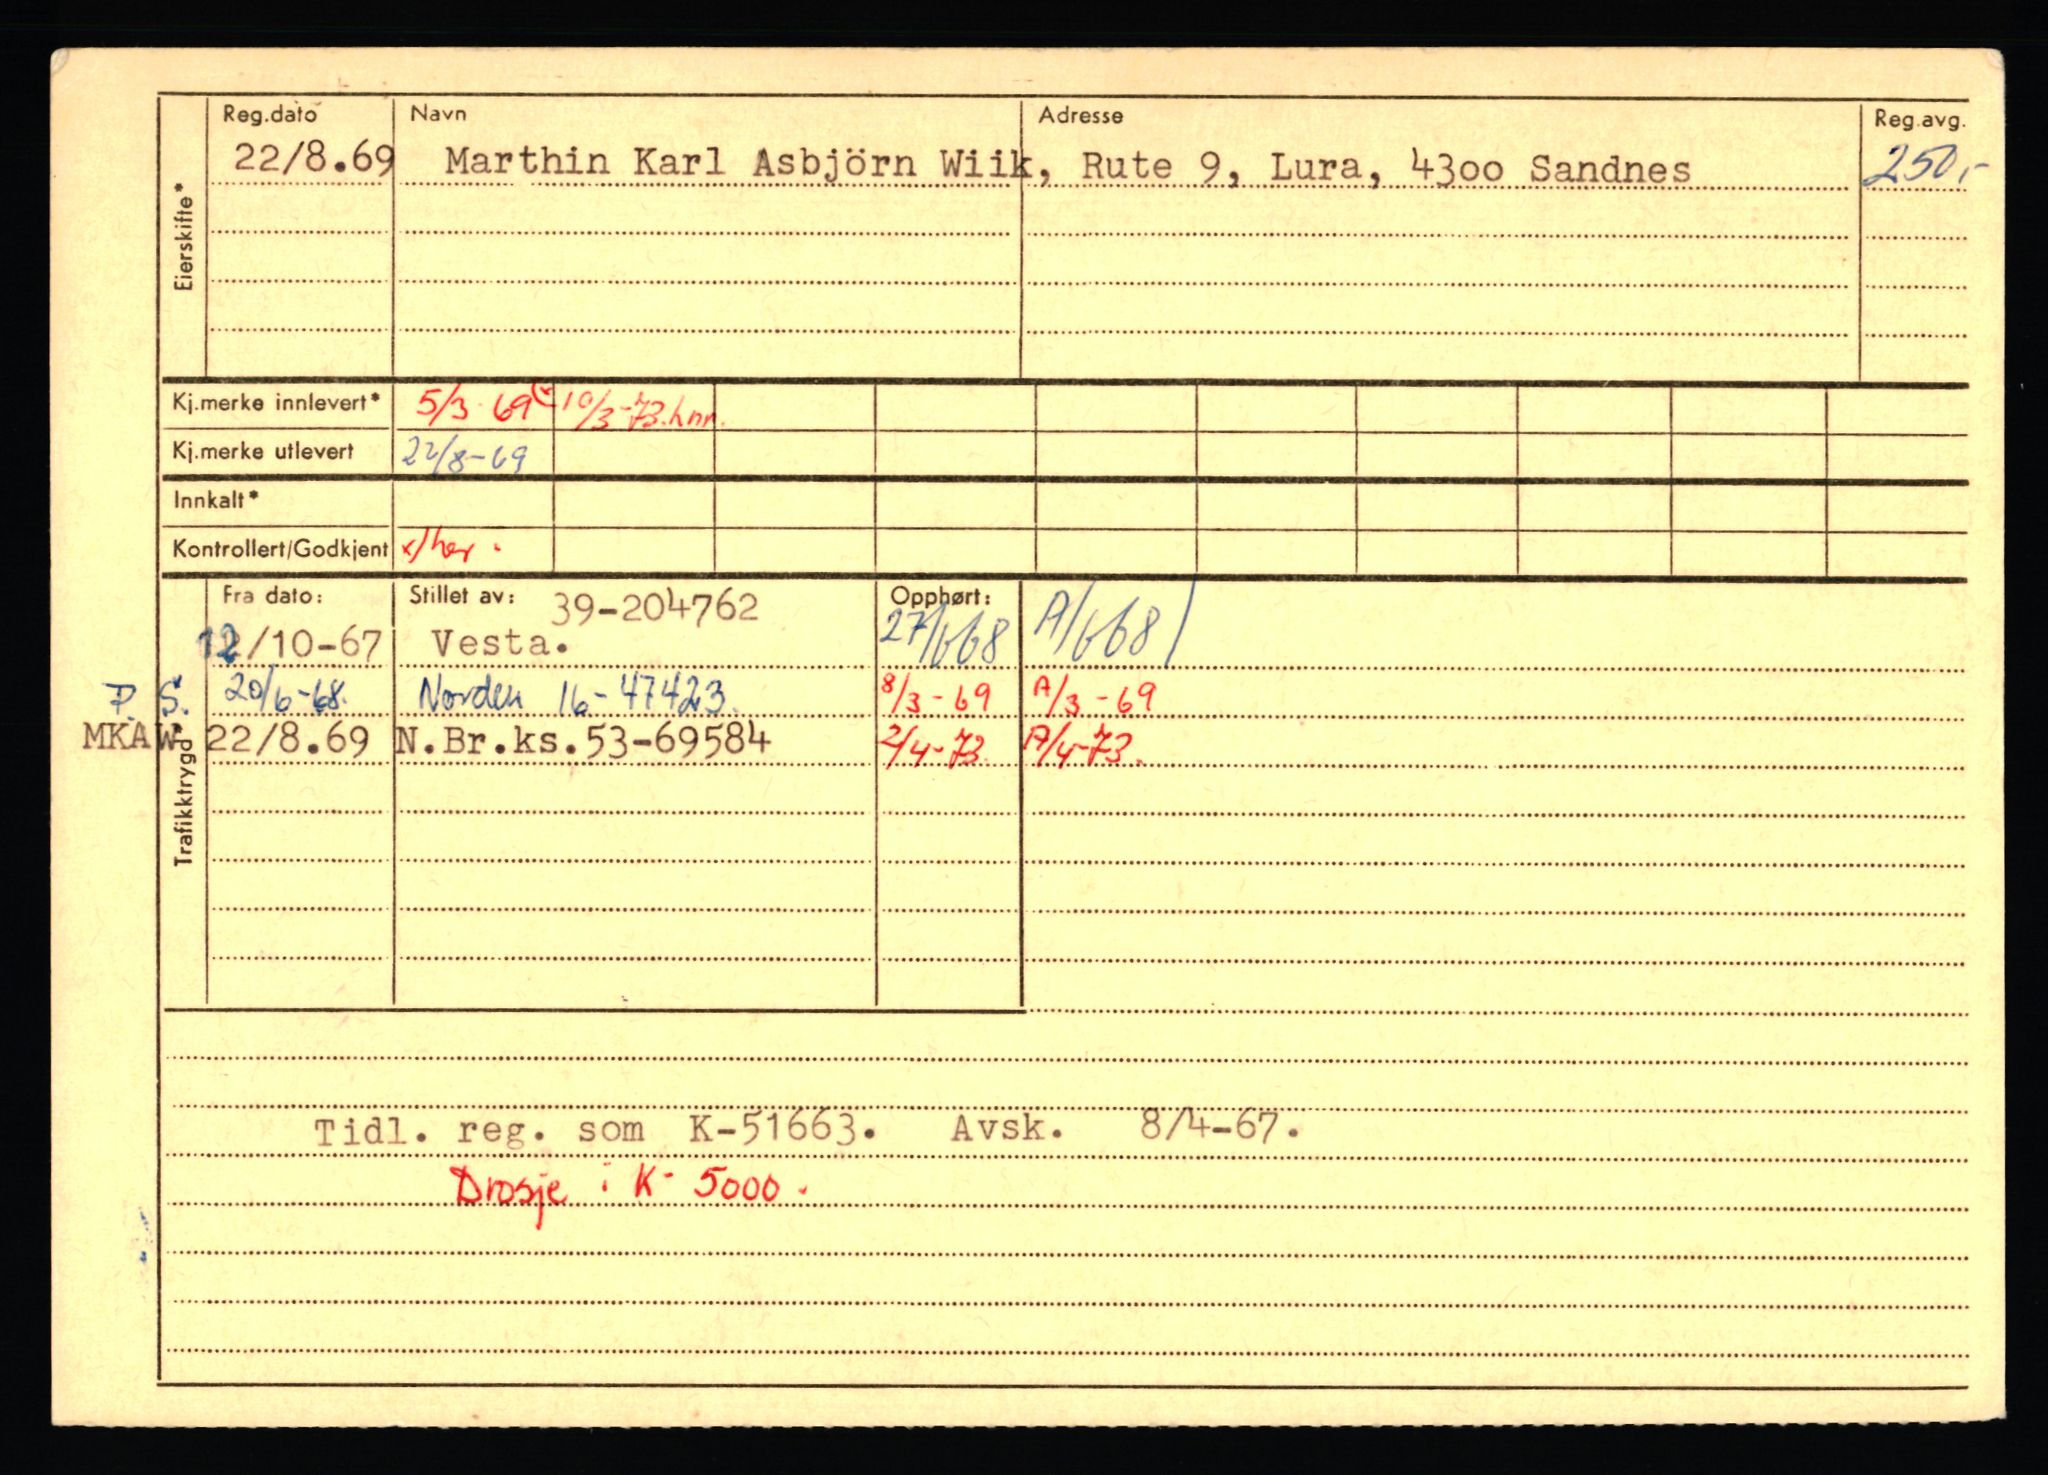 Reg.dato Navn Adresse Reg.avg.
Eierskifte*
22/8.69 Marthin Karl Asbjörn Wiik, Rute 9, Lura, 4300 Sandnes 250,-
Kj.merke innlevert* 5/3-69 (x 10/3-73. hnr.
Kj.merke utlevert 22/8-69
Innkalt*
Kontrollert/Godkjent x/her.
Trafikktrygd
Fra dato: Stillet av: 39-204762 Opphørt:
12/10-67 Vesta. 27/6 68 A/6 68
P.S. 20/6-68. Norden 16-47423. 8/3-69 A/3-69
MKAW 22/8.69 N.Br.ks.53-69584 2/4-73. A/4-73.
Tidl. reg. som K-51663. Avsk. 8/4-67.
Drosje i K- 5000.